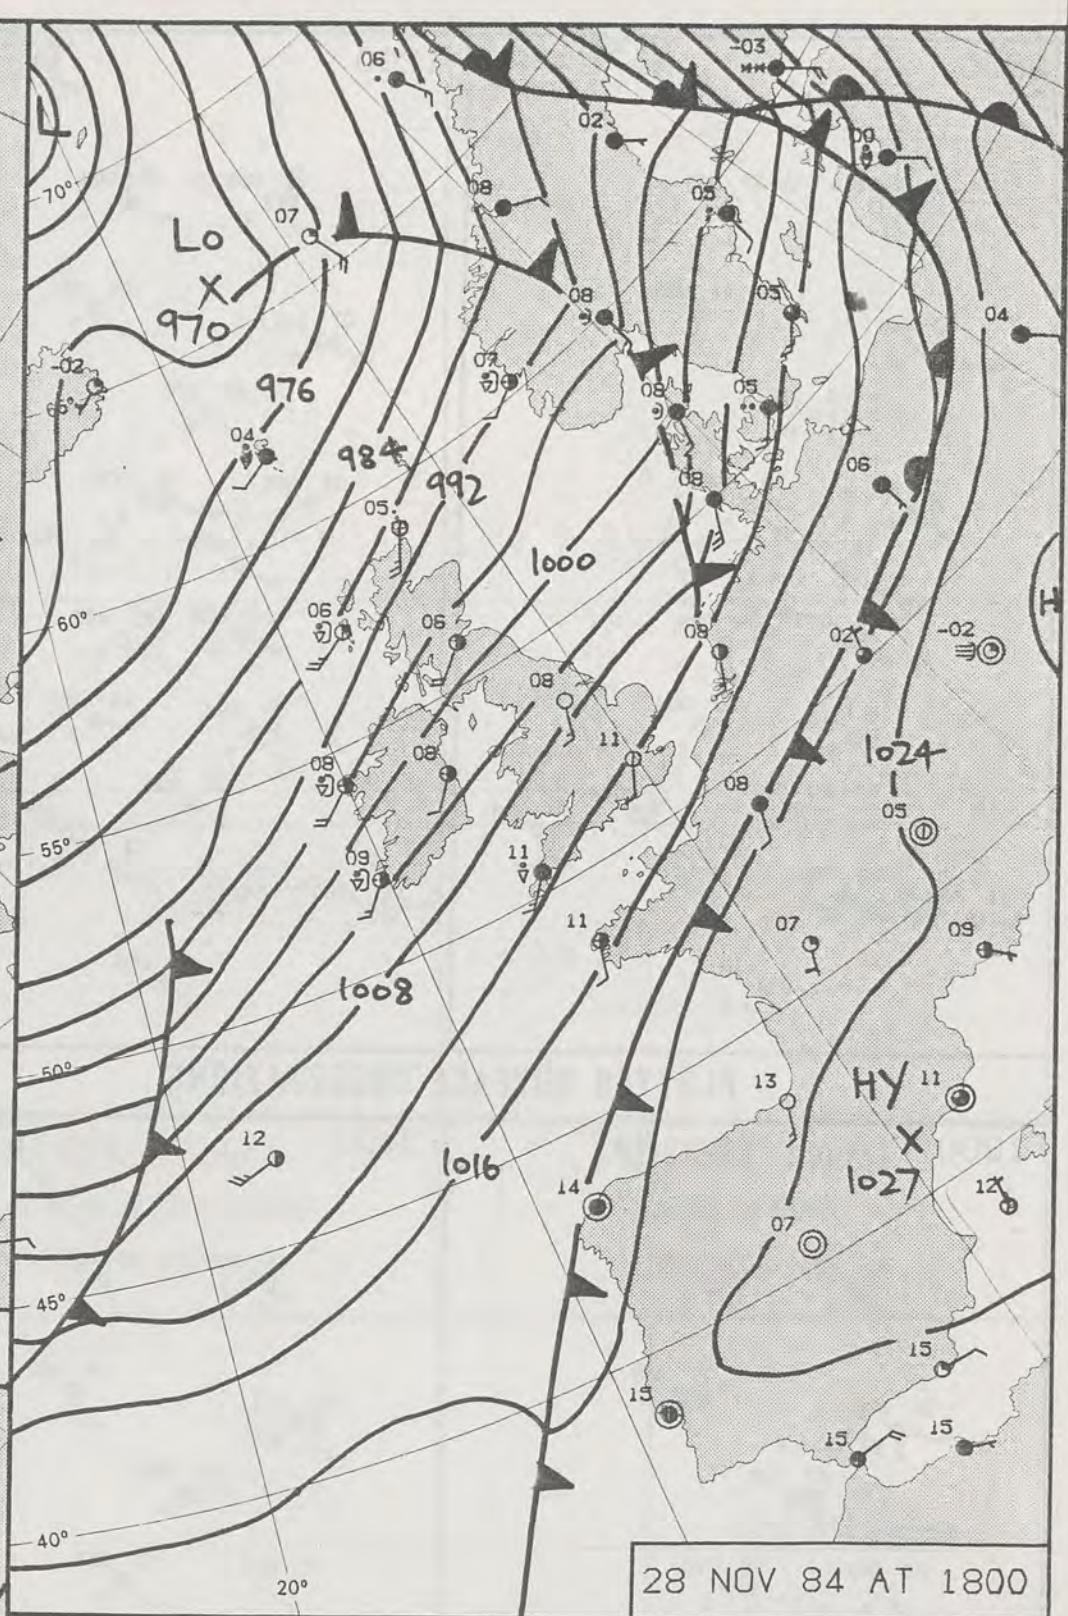 -03
06
L
02
00
70°
08
05
07
Lo
970
08
05
04
-02
65°
07
976
08
05
04
984
992
06
08
05
1000
06
60°
06
08
02
-02
H
08
11
1024
08
08
08
05
55°
09
11
11
07
09
1008
50°
13
HY
11
12
1016
1027
14
12
07
45°
15
15
15
15
40°
20°
28 NOV 84 AT 1800